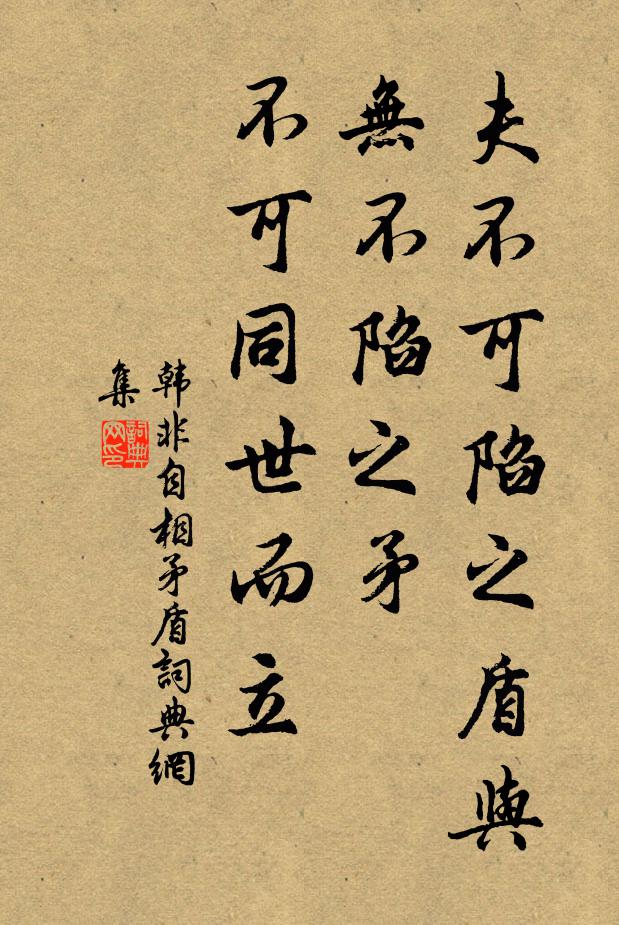 夫不可陷之盾與
無不陷之矛
不可同世而立
韩非自相矛盾詞典網
集
詞典
网印